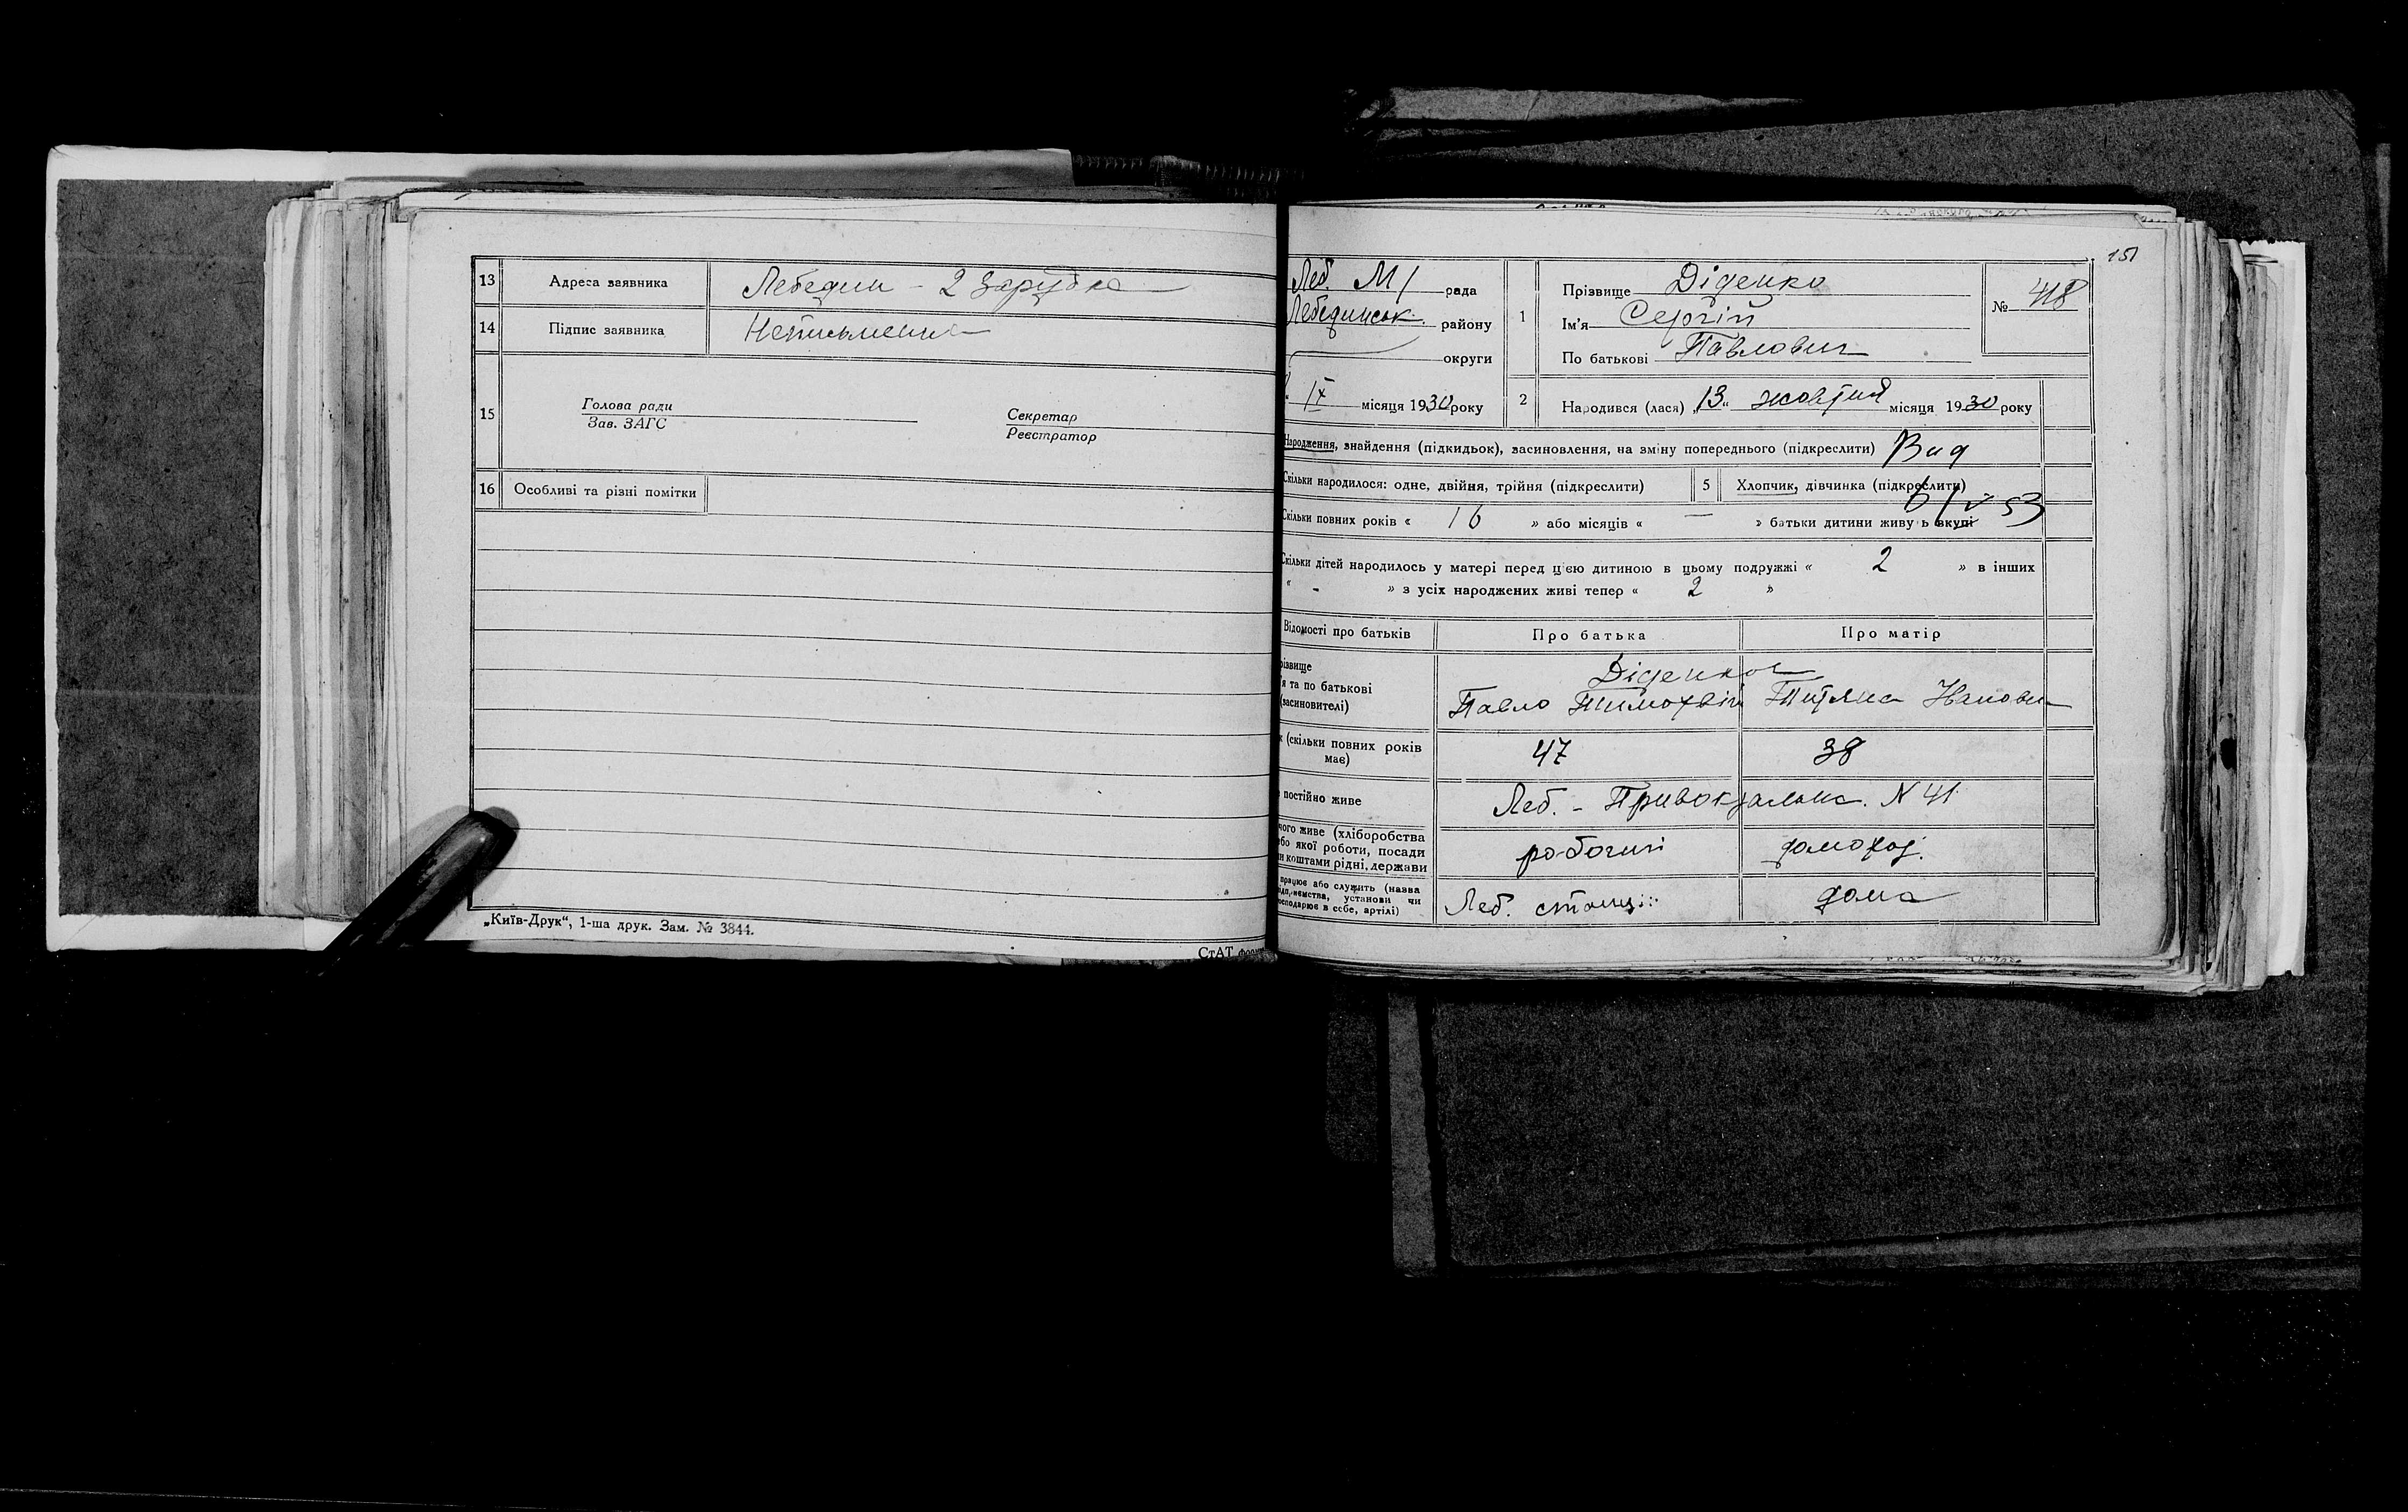 13 Адреса заявника Лебедин - 2 Зарубка
14 Підпис заявника Неписьменна
15 Голова ради
Зав. ЗАГС
Секретар
Реєстратор
16 Особливі та різні помітки
„Київ-Друк“, 1-ша друк. Зам. № 3844.
СтАТ
151
Леб. М/ рада
Лебединськ. району
округи
IX місяця 1930 року
1 Прізвище Діденко
Ім'я Сергій
По батькові Павлович
№ 418
2 Народився (лася) „13“ жовтня місяця 1930 року
Народження, знайдення (підкидьок), засиновлення, на зміну попереднього (підкреслити) Вид
Скільки народилося: одне, двійня, трійня (підкреслити) 5 Хлопчик, дівчинка (підкреслити)
6/V 53
Скільки повних років « 16 » або місяців « — » батьки дитини живуть вкупі
Скільки дітей народилось у матері перед цією дитиною в цьому подружжі « 2 » в інших
« - » з усіх народжених живі тепер « 2 »
Відомості про батьків Про батька Про матір
різвище
я та по батькові
(засиновителі)
Діденко
Павло Тимохвій
к (скільки повних років
має) 47 38
постійно живе Леб. - Привокзальна. N 41
чого живе (хліборобства
або якої роботи, посади
и коштами рідні, держави
робочий домогос.
працює або служить (назва
установи чи
господарює в себе, артілі)
Леб. станції дома